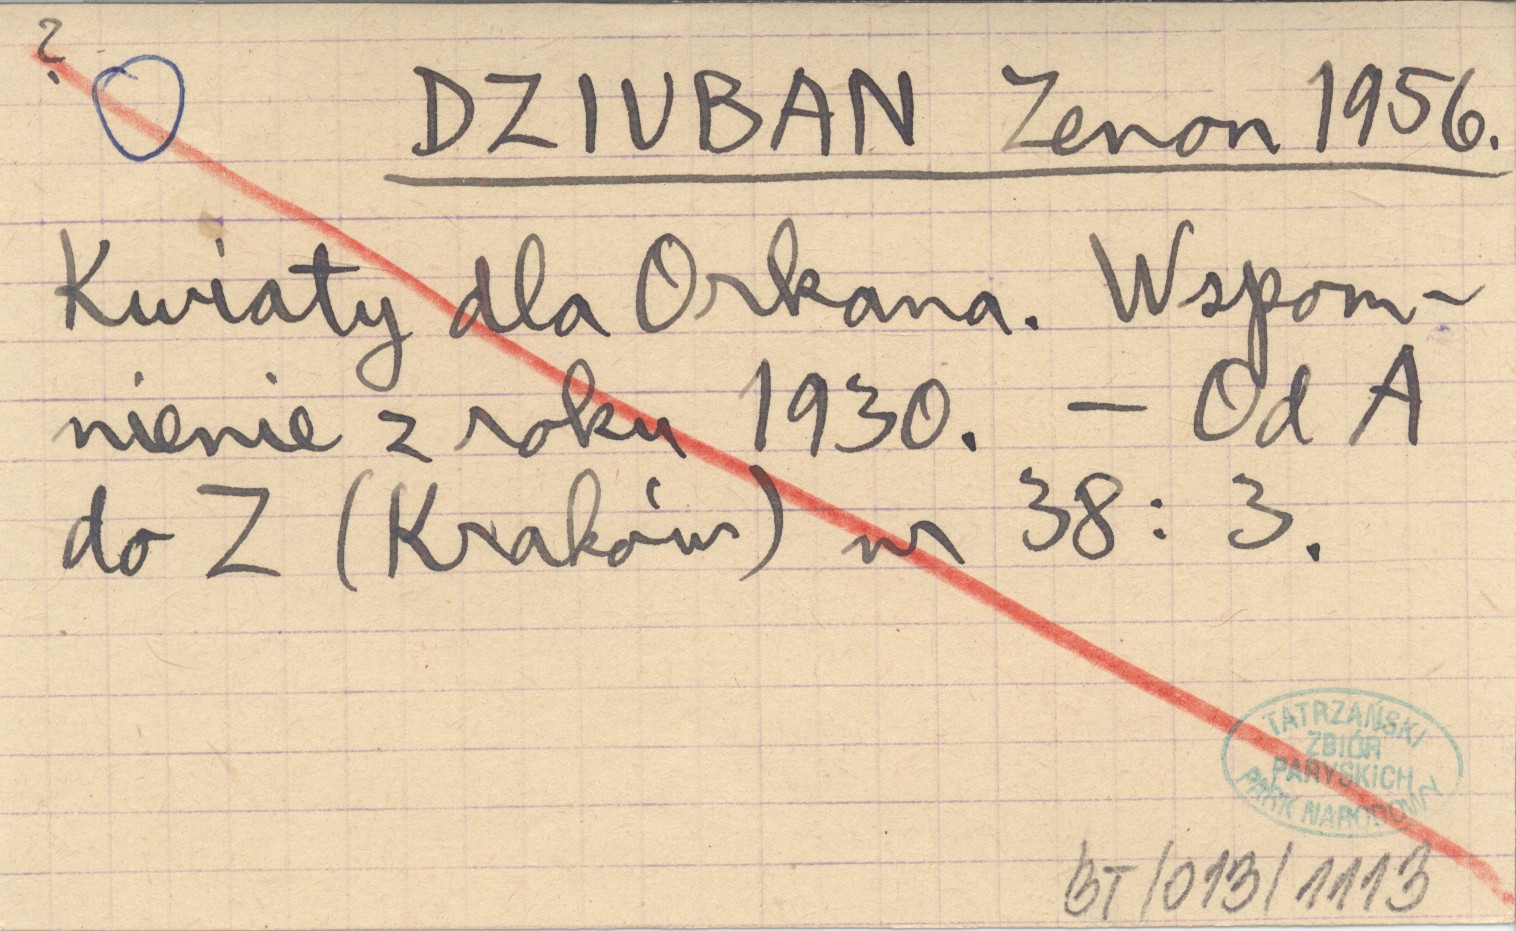 ?
DZIUBAN Zenon 1956.
Kwiaty dla Orkana. Wspom-
nienie z roku 1930. — Od A
do Z (Kraków) nr 38: 3.
TATRZAŃSKI
ZBIÓR
PARYSKICH
PARK NARODOWY
BT/013/1113